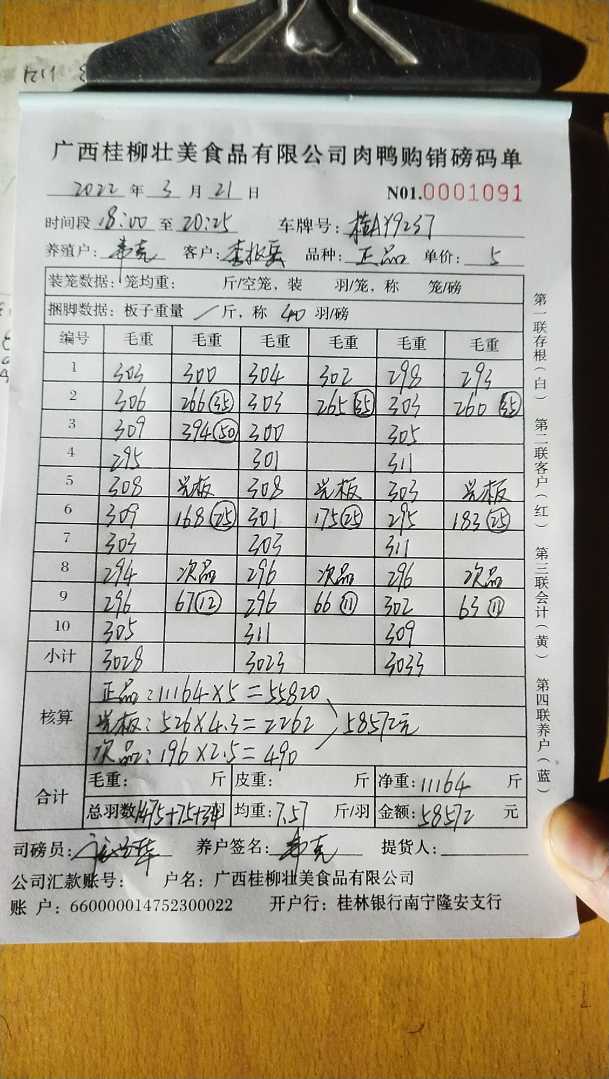 广西桂柳壮美食品有限公司肉鸭购销磅码单
2022 年 3 月 21 日 N01.0001091
时间段 18:00 至 20:25 车牌号: 桂AY9237
养殖户: 韦克 客户: 品种: 正品 单价: 5
装笼数据: 笼均重: 斤/空笼, 装 羽/笼, 称 笼/磅
捆脚数据: 板子重量 / 斤, 称 40 羽/磅
编号 毛重 毛重 毛重 毛重 毛重 毛重
1 303 300 304 302 298 293
2 306 266 35 303 265 35 303 260 35
3 309 394 50 300 305
4 295 301 311
5 308 光板 308 光板 303 光板
6 309 168 25 301 175 25 295 183 25
7 303 303 311
8 294 次品 296 次品 296 次品
9 296 67 12 296 66 11 302 63 11
10 305 311 309
小计 3028 3023 3033
核算
正品:11164×5=55820
光板:526×4.3=2262 58572元
次品:196×2.5=490
合计
毛重: 斤 皮重: 斤 净重: 11164 斤
总羽数 1475+75+34 均重: 7.57 斤/羽 金额: 58572 元
司磅员: 养户签名: 韦克 提货人:
公司汇款账号: 户名: 广西桂柳壮美食品有限公司
账 户: 660000014752300022 开户行: 桂林银行南宁隆安支行
第一联存根(白) 第二联客户(红) 第三联会计(黄) 第四联养户(蓝)